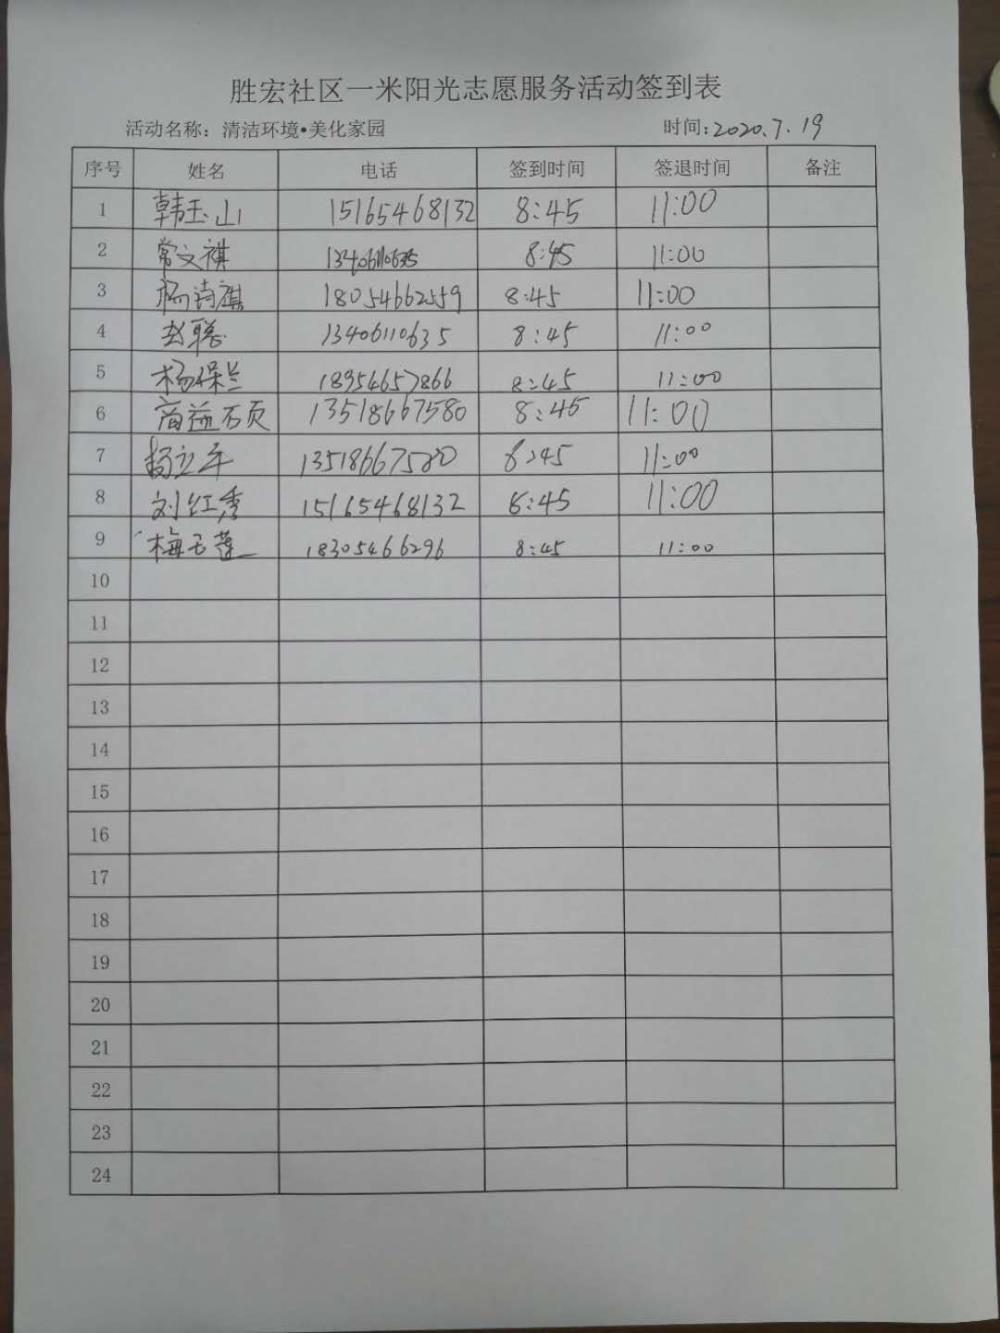 胜宏社区一米阳光志愿服务活动签到表
活动名称：清洁环境•美化家园 时间:2020.7.19
序号 姓名 电话 签到时间 签退时间 备注
1 韩玉山 15165468132 8:45 11:00
2 常文祺 13406110635 8:45 11:00
3 杨诗祺 18054662559 8:45 11:00
4 赵聪 13406110635 8:45 11:00
5 杨保兰 18954657866 8:45 11:00
6 商益硕 13518667580 8:45 11:00
7 杨立军 13518667580 8:45 11:00
8 刘红秀 15165468132 8:45 11:00
9 梅玉莲 18305466296 8:45 11:00
10
11
12
13
14
15
16
17
18
19
20
21
22
23
24